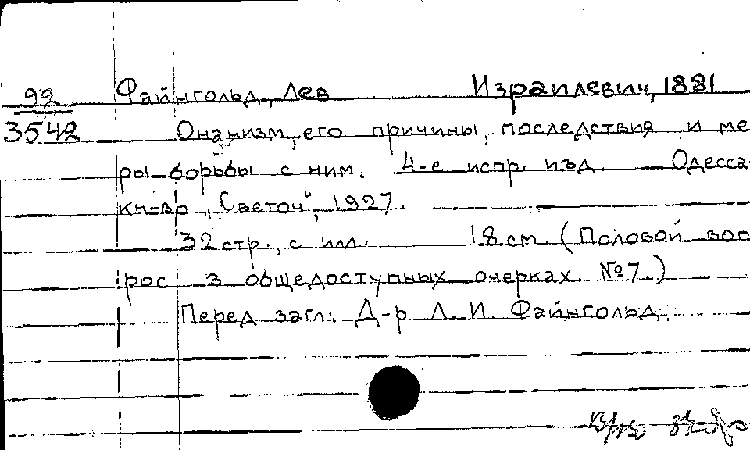 92 Файнгольд, Лев Израилевич, 1881
3542 Онанизм, его причины, последствия и ме
ры борьбы с ним. 4-е испр. изд. Одесса
кн-во "Светоч", 1927.
32 стр., с илл. 18 см (Половой воп
рос в общедоступных очерках №7.)
Перед загл.: Д-р Л. И. Файнгольд.